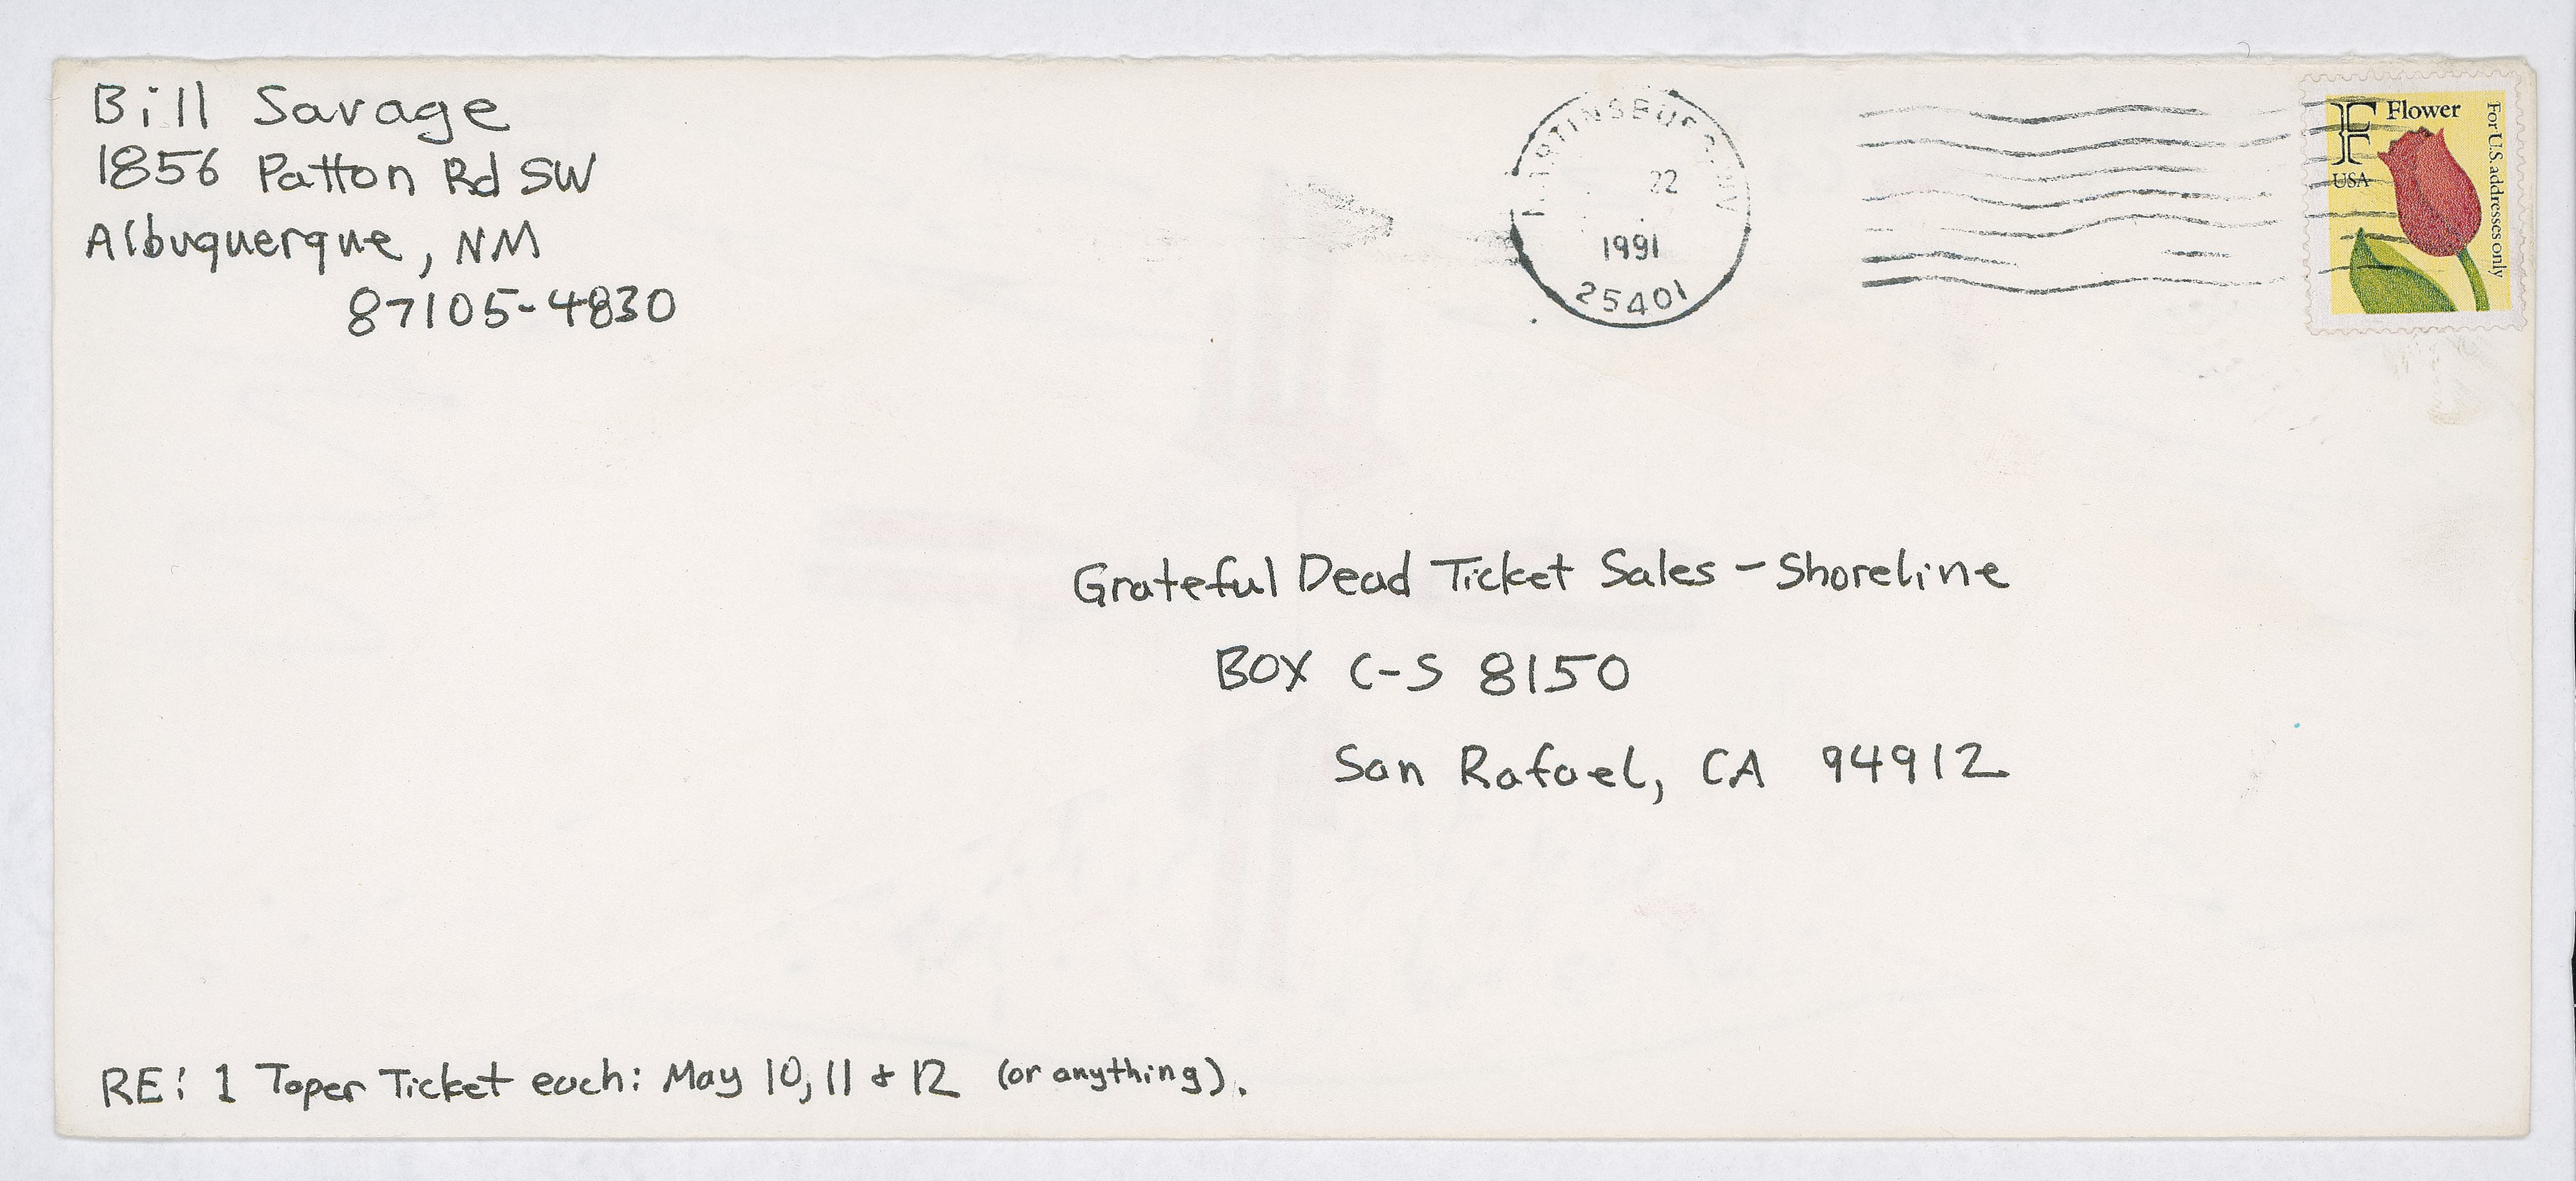 Bill Savage
1856 Patton Rd SW
Albuquerque, NM
87105-4830
MARTINSBURG WV
22
1991
25401
F Flower
USA
For U.S. addresses only
Grateful Dead Ticket Sales - Shoreline
BOX C-S 8150
San Rafael, CA 94912
RE: 1 Taper Ticket each: May 10, 11 & 12 (or anything).